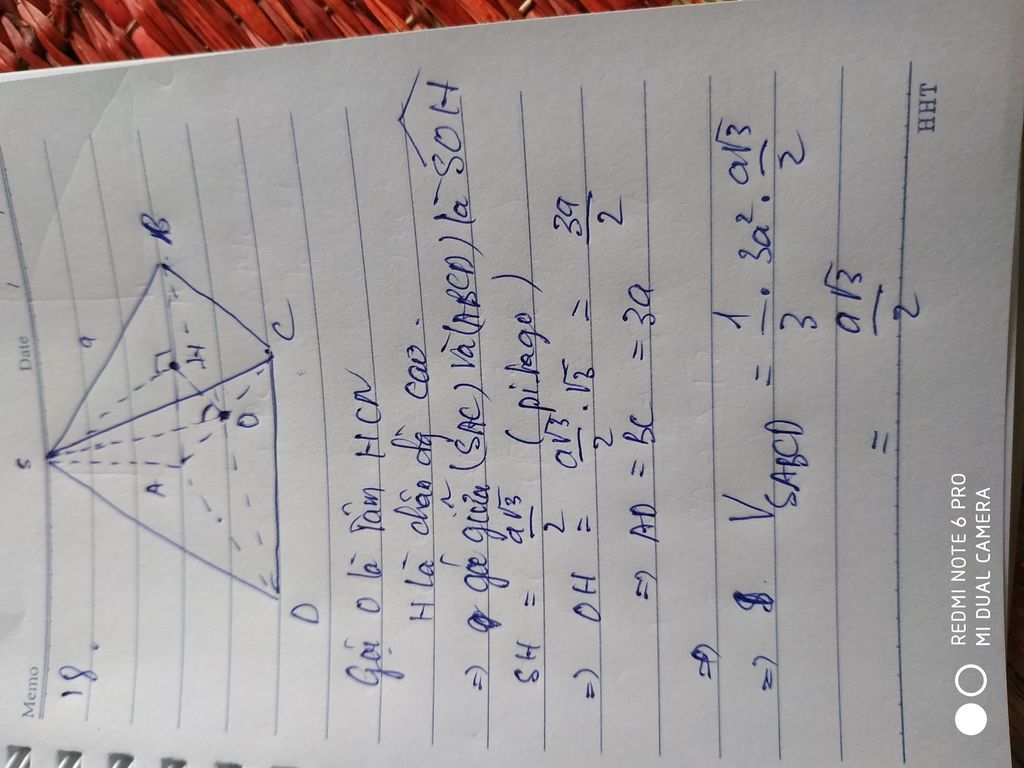 Memo
Date / /
18.
S
a
B
A
H
O
C
D
Gọi O là Tâm HCN
H là chân đg cao.
=> góc giữa (SAC) và (ABCD) là SOH
SH = a√3/2 (pitago)
=> OH = a√3/2 . √3 = 3a/2
=> AD = BC = 3a
=>
=> V SABCD = 1/3 . 3a² . a√3/2
= a√3/2
HHT
REDMI NOTE 6 PRO
MI DUAL CAMERA